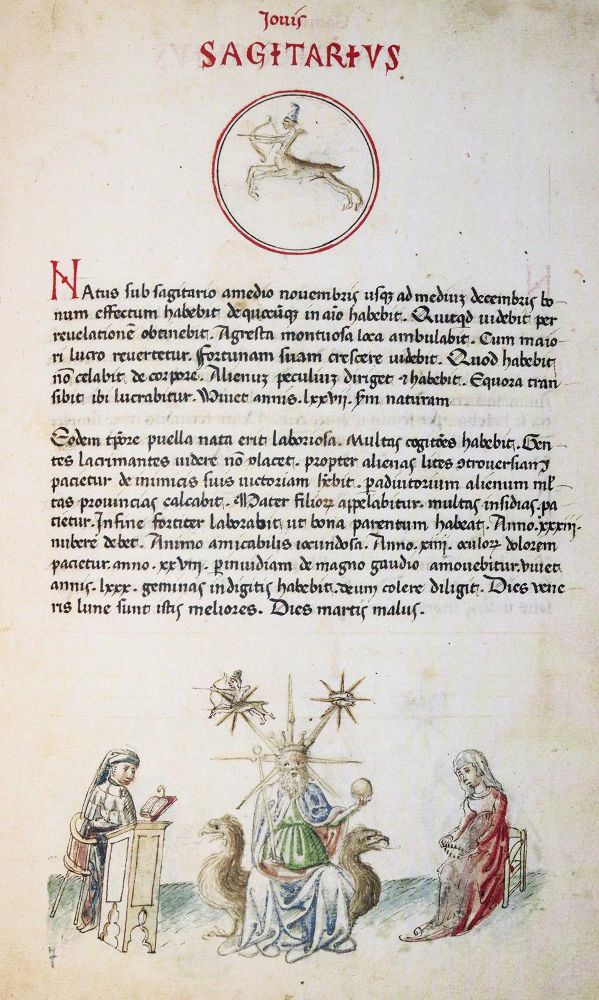 Jouis
SAGITARIVS
NAtus sub sagitario amedio nouembris usq; ad mediuz decembris bo-
num effectum habebit de quocūq; in aīo habebit. Quicqd uidebit per
reuelationē obtinebit. Agresta montuosa loca ambulabit. Cum maio-
ri lucro reuertetur. Fortunam suam crescere uidebit. Quod habebit
nō celabit de corpore. Alienuz peculiuz diriget ⁊ habebit. Equora tran
sibit ibi lucrabitur. Viuet annis. lxxvii. naturam
Eodem tp̄ore puella nata erit laboriosa. Multas cogitōes habebit. Gen-
tes lacrimantes uidere nō placet. propter alienas lites
pacietur de inimicis suis uictoriam hēbit. alienum
tas prouincias calcabit. Mater filioꝝ appelabitur. multas insidias pa
cietur. Infine fortiter laborabit ut bona parentum habeat. Anno. xxxiii.
nubere debet. Animo amicabilis iocundosa. Anno. xiiii. oculoꝝ dolorem
pacietur. anno. xxviii. ꝑ inuidiam de magno gaudio amouebitur. uiuet
annis. lxxx. geminas indigitis habebit. deum colere diligit. Dies uene
ris lune sunt istis meliores. Dies martis malus.
7